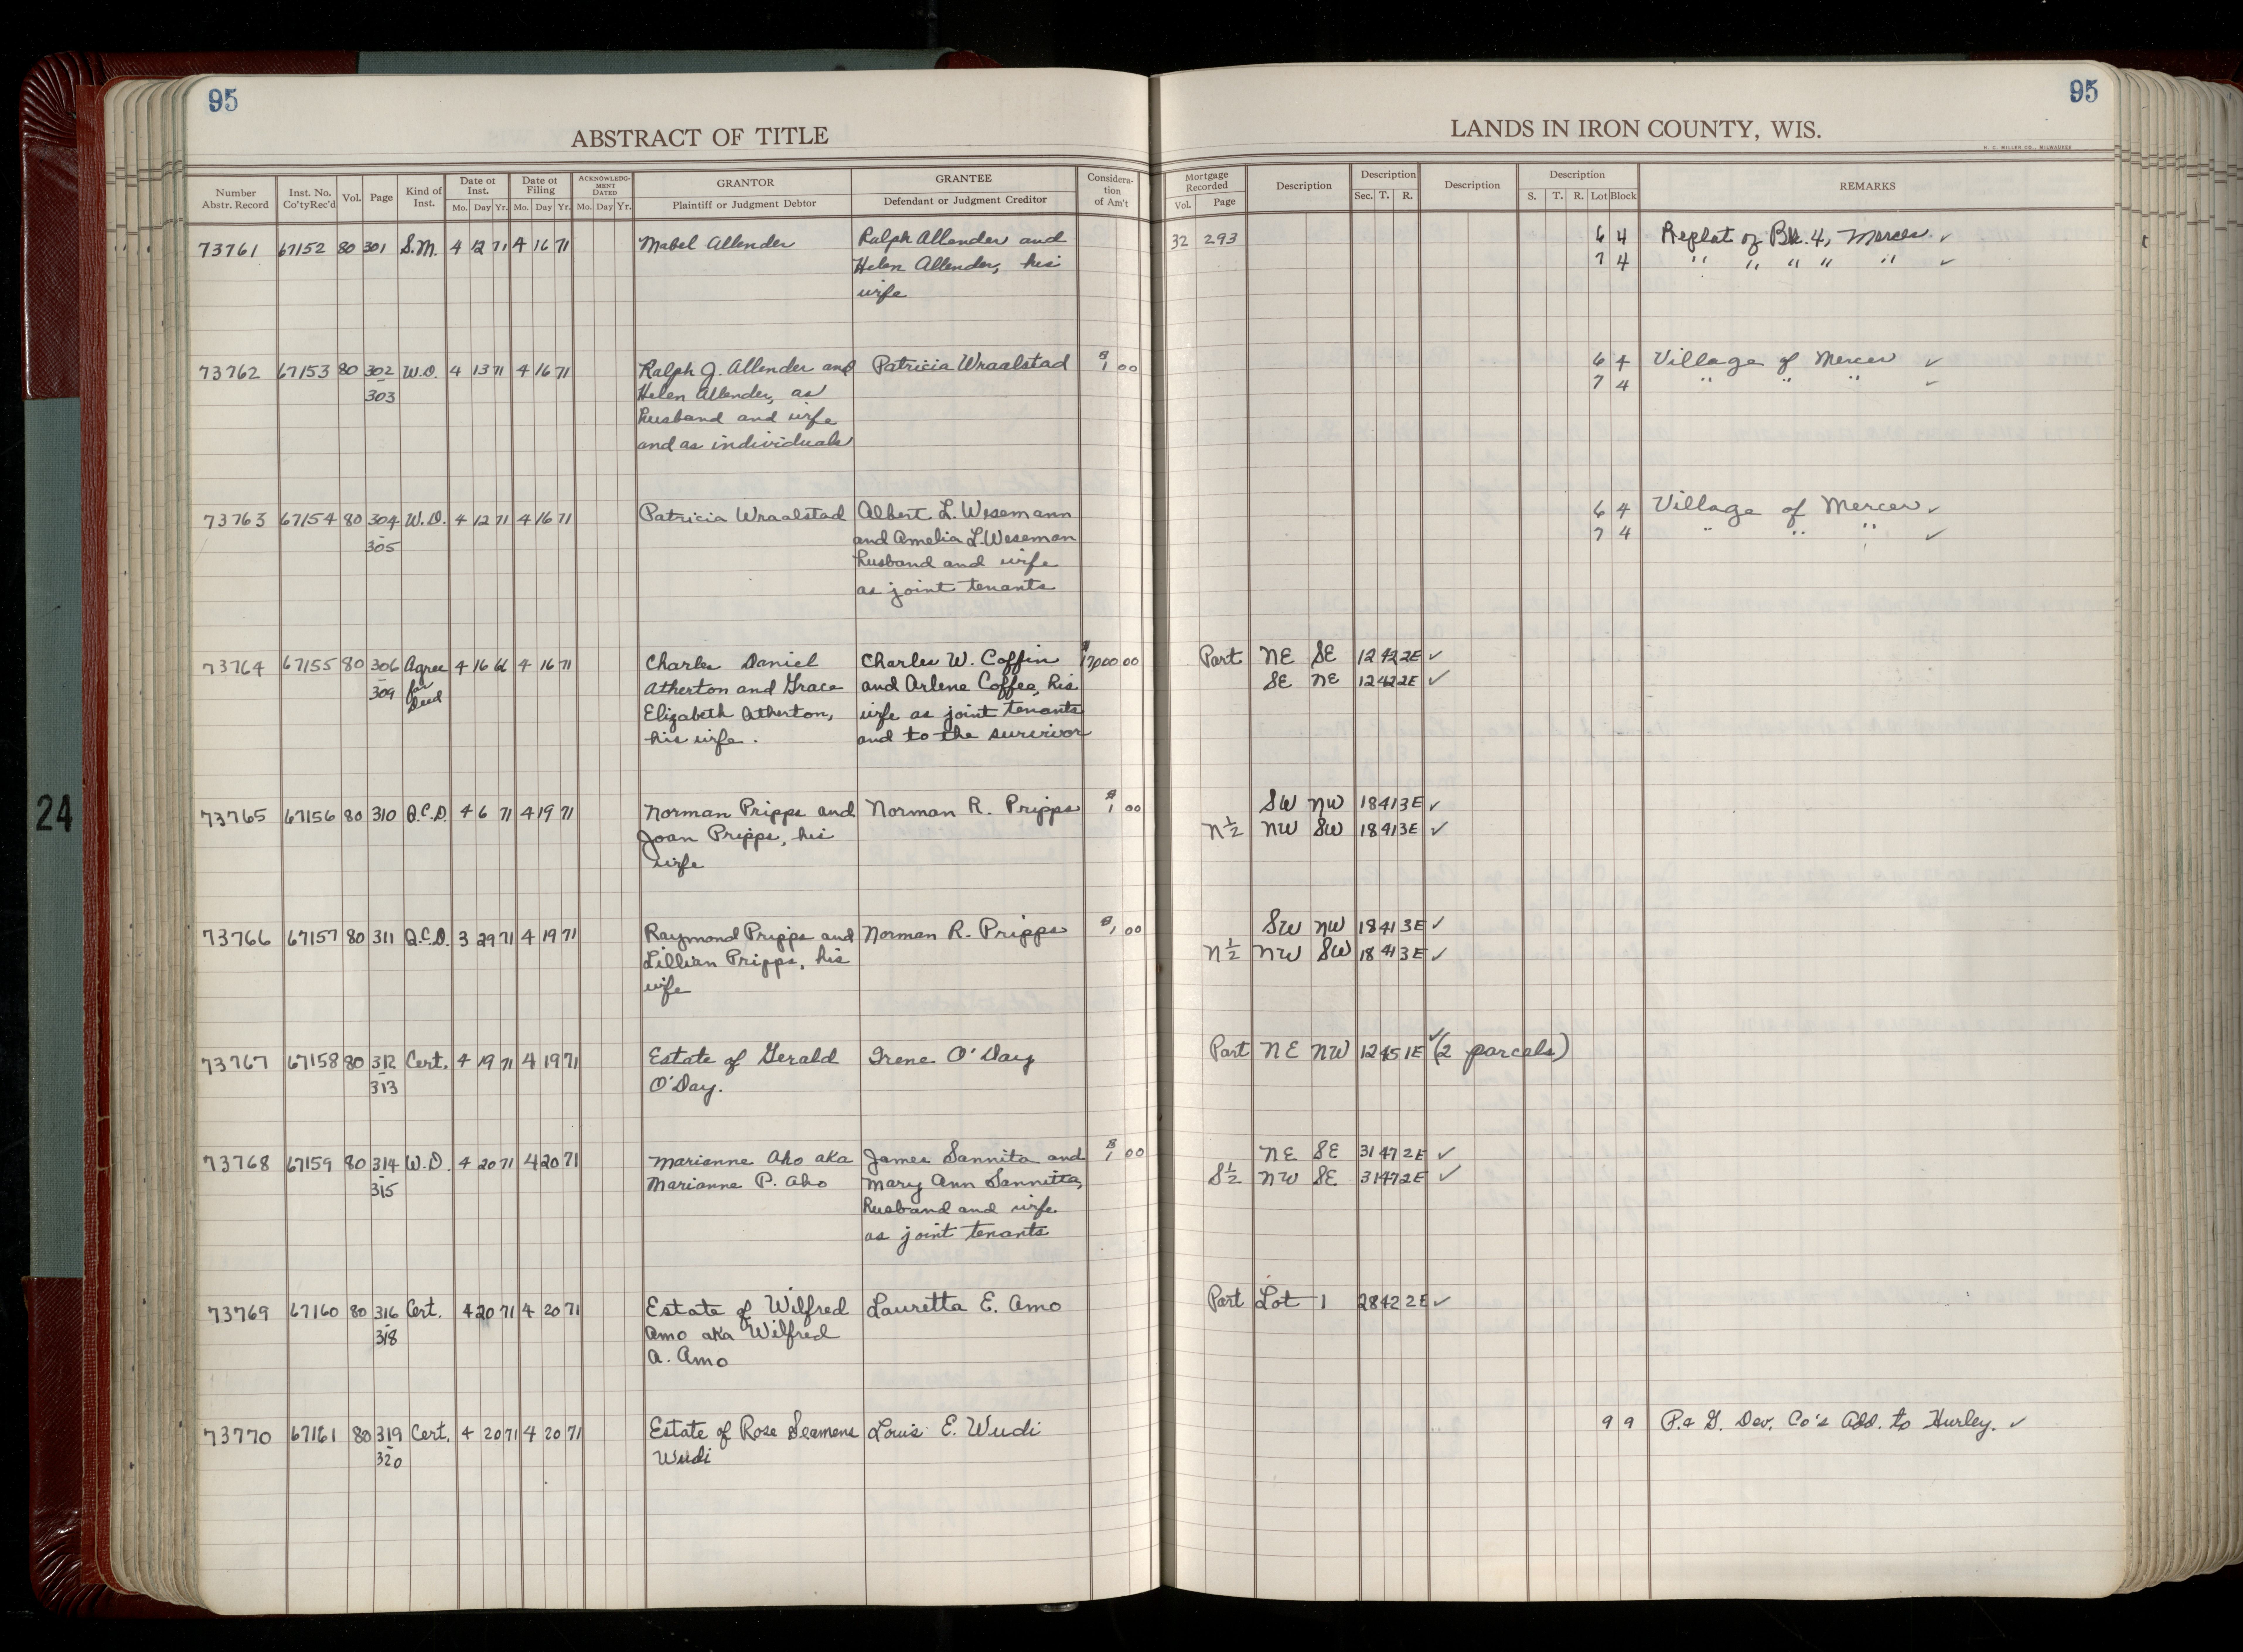 95
ABSTRACT OF TITLE
95
LANDS IN IRON COUNTY, WIS.
H. C. MILLER CO., MILWAUKEE
Number Abstr. Record | Inst. No. Co'ty Rec'd | Vol. | Page | Kind of Inst. | Date of Inst. Mo. Day Yr. | Date of Filing Mo. Day Yr. | ACKNOWLEDGMENT DATED Mo. Day Yr. | GRANTOR Plaintiff or Judgment Debtor | GRANTEE Defendant or Judgment Creditor | Consideration of Am't | Mortgage Recorded Vol. Page | Description | Description Sec. T. R. | Description | Description S. T. R. Lot Block | REMARKS
73761 67152 80 301 S.M. 4 12 71 4 16 71 Mabel Allender Ralph Allender and 32 293 6 4 Replat of Bk. 4, Mercer ✓
Helen Allender, his 7 4 " " " " " ✓
wife
73762 67153 80 302 W.D. 4 13 71 4 16 71 Ralph J. Allender and Patricia Wraalstad $1 00 6 4 Village of Mercer ✓
- 303 Helen Allender, as 7 4 " " " ✓
husband and wife
and as individuals
73763 67154 80 304 W.D. 4 12 71 4 16 71 Patricia Wraalstad Albert L. Wesemann 6 4 Village of Mercer ✓
- 305 and Amelia L. Weseman 7 4 " " " ✓
husband and wife
as joint tenants
73764 67155 80 306 Agree 4 16 66 4 16 71 Charles Daniel Charles W. Coffin $17,000 00 Part NE SE 12 42 2E ✓
- 309 for Atherton and Grace and Arlene Coffee, his SE NE 12 42 2E ✓
Deed Elizabeth Atherton, wife as joint tenants
his wife. and to the survivor
24
73765 67156 80 310 Q.C.D. 4 6 71 4 19 71 Norman Pripps and Norman R. Pripps $1 00 SW NW 18 41 3E ✓
Joan Pripps, his N½ NW SW 18 41 3E ✓
wife
73766 67157 80 311 Q.C.D. 3 29 71 4 19 71 Raymond Pripps and Norman R. Pripps $1 00 SW NW 18 41 3E ✓
Lillian Pripps, his N½ NW SW 18 41 3E ✓
wife
73767 67158 80 312 Cert. 4 19 71 4 19 71 Estate of Gerald Irene O'Day Part NE NW 12 45 1E ✓ (2 parcels)
- 313 O'Day.
73768 67159 80 314 W.D. 4 20 71 4 20 71 Marianne Aho aka James Sannita and $1 00 NE SE 31 47 2E ✓
- 315 Marianne P. Aho Mary Ann Sannitta, S½ NW SE 31 47 2E ✓
husband and wife
as joint tenants
73769 67160 80 316 Cert. 4 20 71 4 20 71 Estate of Wilfred Lauretta E. Amo Part Lot 1 28 42 2E ✓
- 318 Amo aka Wilfred
A. Amo
73770 67161 80 319 Cert. 4 20 71 4 20 71 Estate of Rose Seamens Louis E. Wudi 9 9 P. & G. Dev. Co's Add. to Hurley. ✓
- 320 Wudi